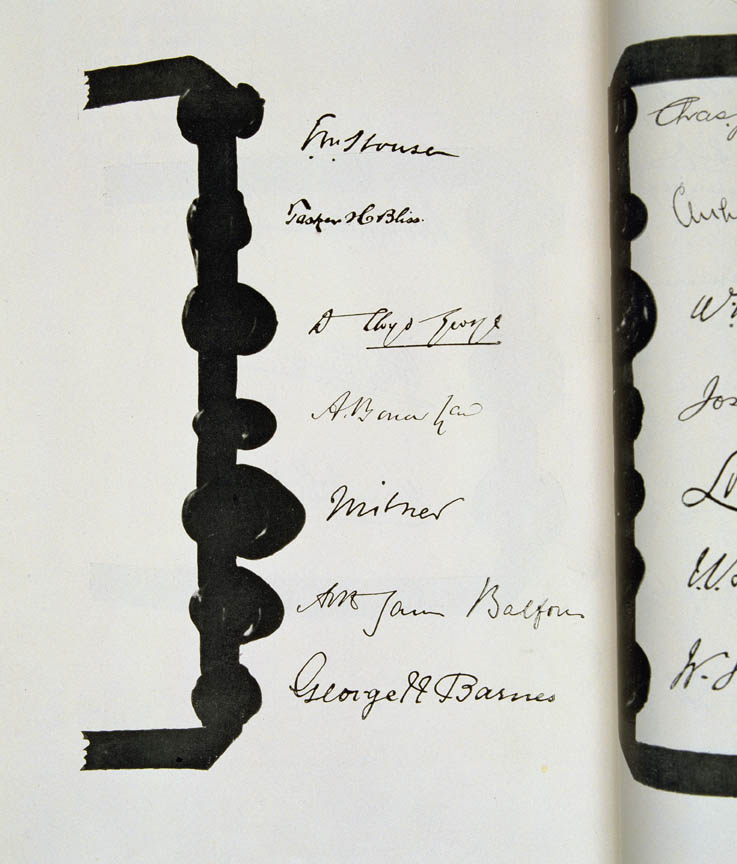 E.M. House
Tasker H Bliss.
D Lloyd George
A. Bonar Law
Milner
Arth James Balfour
George N Barnes
Chas.